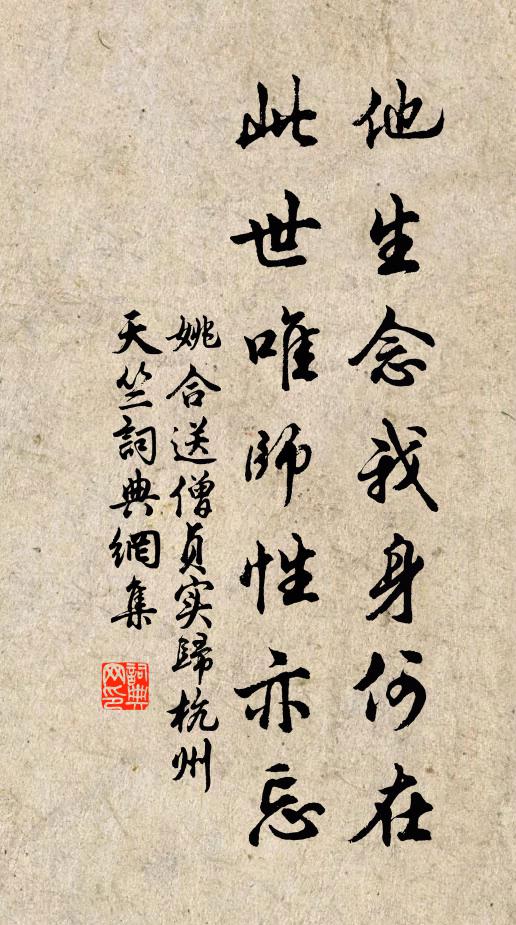 他生念我身何在
此世唯師性亦忘
姚合送僧貞实歸杭州
天竺詞典網集
詞典
网印